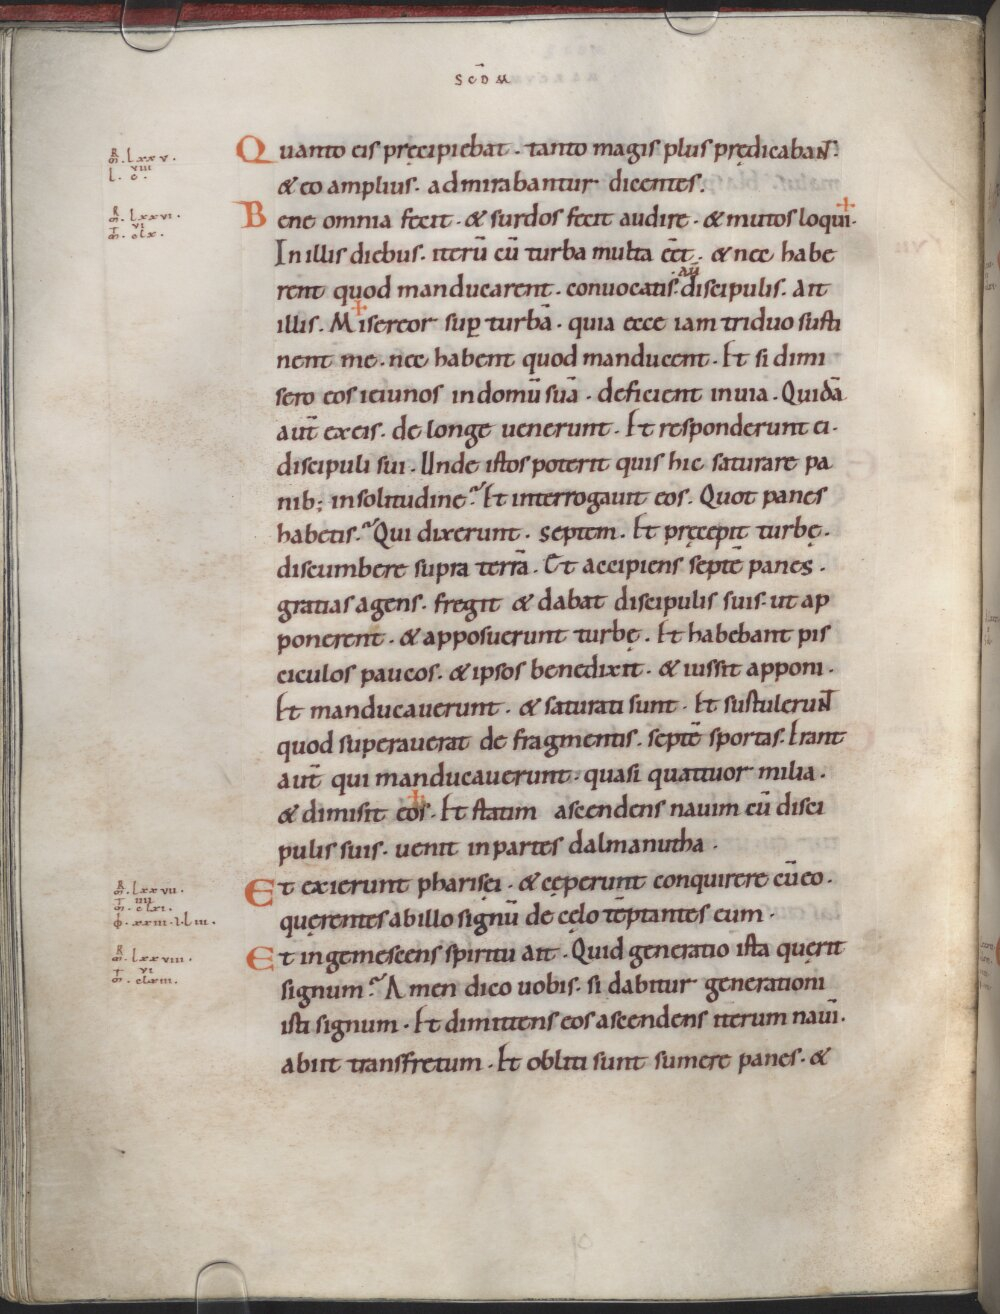 SCDM
Quanto eis pręcipiebat . tanto magis plus prędicabaNT.
& eo amplius . admirabantur dicentes.
R̅ m̅ . lxxv .
viii
l . c .
Bene omnia fecit . & surdos fecit audire . & mutos loqui.
In illis diebus . iterū cū turba multa eēt . & nec habe
rent quod manducarent . convocatis . aū discipulis . ait
illis . Misereor sup̱ turbā . quia ecce iam triduo susti
nent me . nec habent quod manducent . Et si dimi
sero eos ieiunos in domū suā . deficient in uia . Quidā
aut̄ ex eis . de longe uenerunt . Et responderunt ei .
discipuli sui . Unde istos poterit quis hic saturare pa
nib; in solitudine ? Et interrogauit eos . Quot panes
habetis . ? Qui dixerunt . septem . Et pręcepit turbę .
discumbere supra terrā . Et accipiens septē panes .
gratias agens . fregit & dabat discipulis suis . ut ap
ponerent . & apposuerunt turbę . Et habebant pis
ciculos paucos . & ipsos benedixit . & iussit apponi .
Et manducauerunt . & saturati sunt . Et sustuleruNT
quod superauerat de fragmentis . septē sportas . Erant
aut̄ qui manducauerunt . quasi quattuor milia .
& dimisit eos . Et statim ascendens nauim cū disci
pulis suis . uenit in partes dalmanutha .
Et exierunt pharisęi . & cęperunt conquirere cū eo .
quęrentes ab illo signū de cęlo tēptantes eum .
Et ingemescens spiritu ait . Quid generatio ista quęrit
signum ? Amen dico uobis . si dabitur generationi
isti signum . Et dimittens eos ascendens iterum nauī .
abiit transfretum . Et obliti sunt sumere panes . &
R̅ m̅ . lxxvi .
vi
m̅ . clx .
R̅ m̅ . lxxvii .
iiii
m̅ . clxi .
xxiii . l . liii .
R̅ m̅ . lxxviii .
vi
m̅ . clxiii .